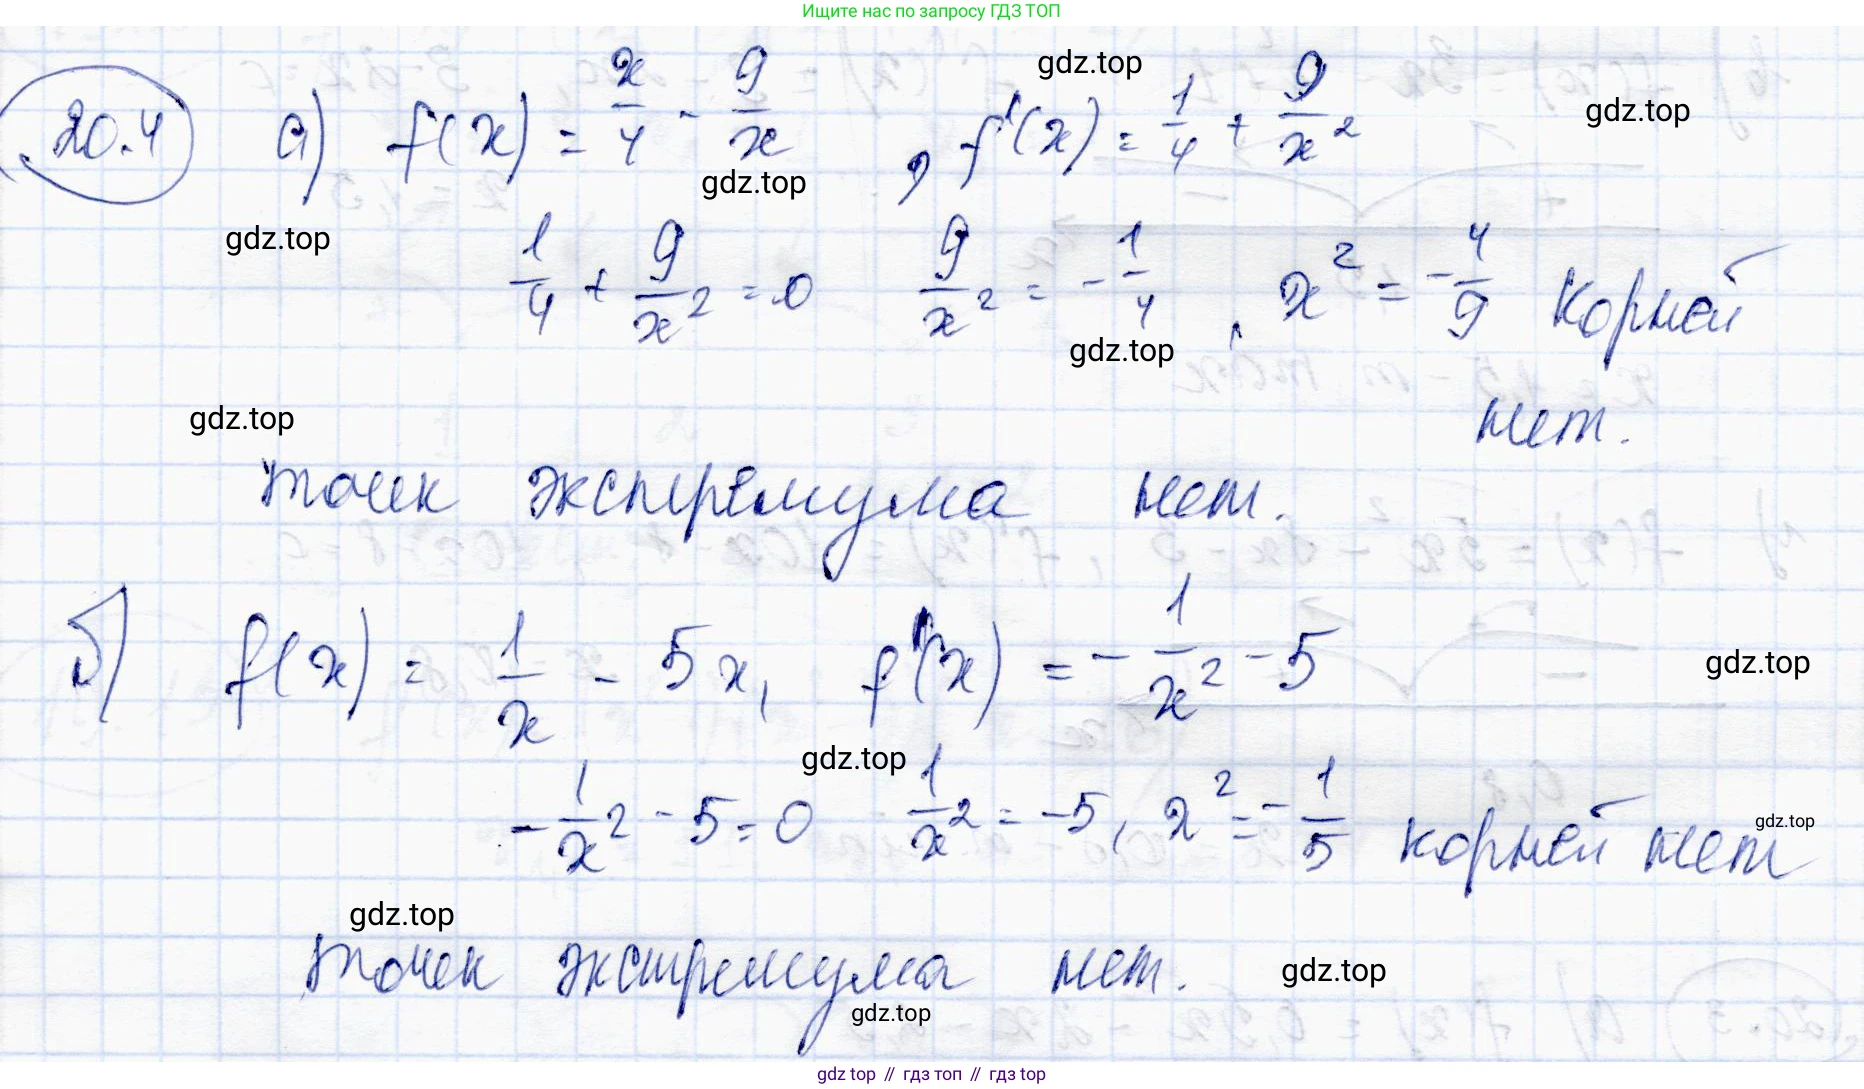 Ищите нас по запросу ГДЗ ТОП
20.4 а) f(x) = x/4 - 9/x , f'(x) = 1/4 + 9/x²
gdz.top
gdz.top
gdz.top
gdz.top
1/4 + 9/x² = 0 9/x² = -1/4 , x² = -4/9 корней
gdz.top
нет.
gdz.top
точек экстремума нет.
б) f(x) = 1/x - 5x, f'(x) = -1/x² - 5
gdz.top
gdz.top
-1/x² - 5 = 0 1/x² = -5, x² = -1/5 корней нет
gdz.top
gdz.top
точек экстремума нет.
gdz.top
gdz.top
gdz top // гдз топ // гдз top